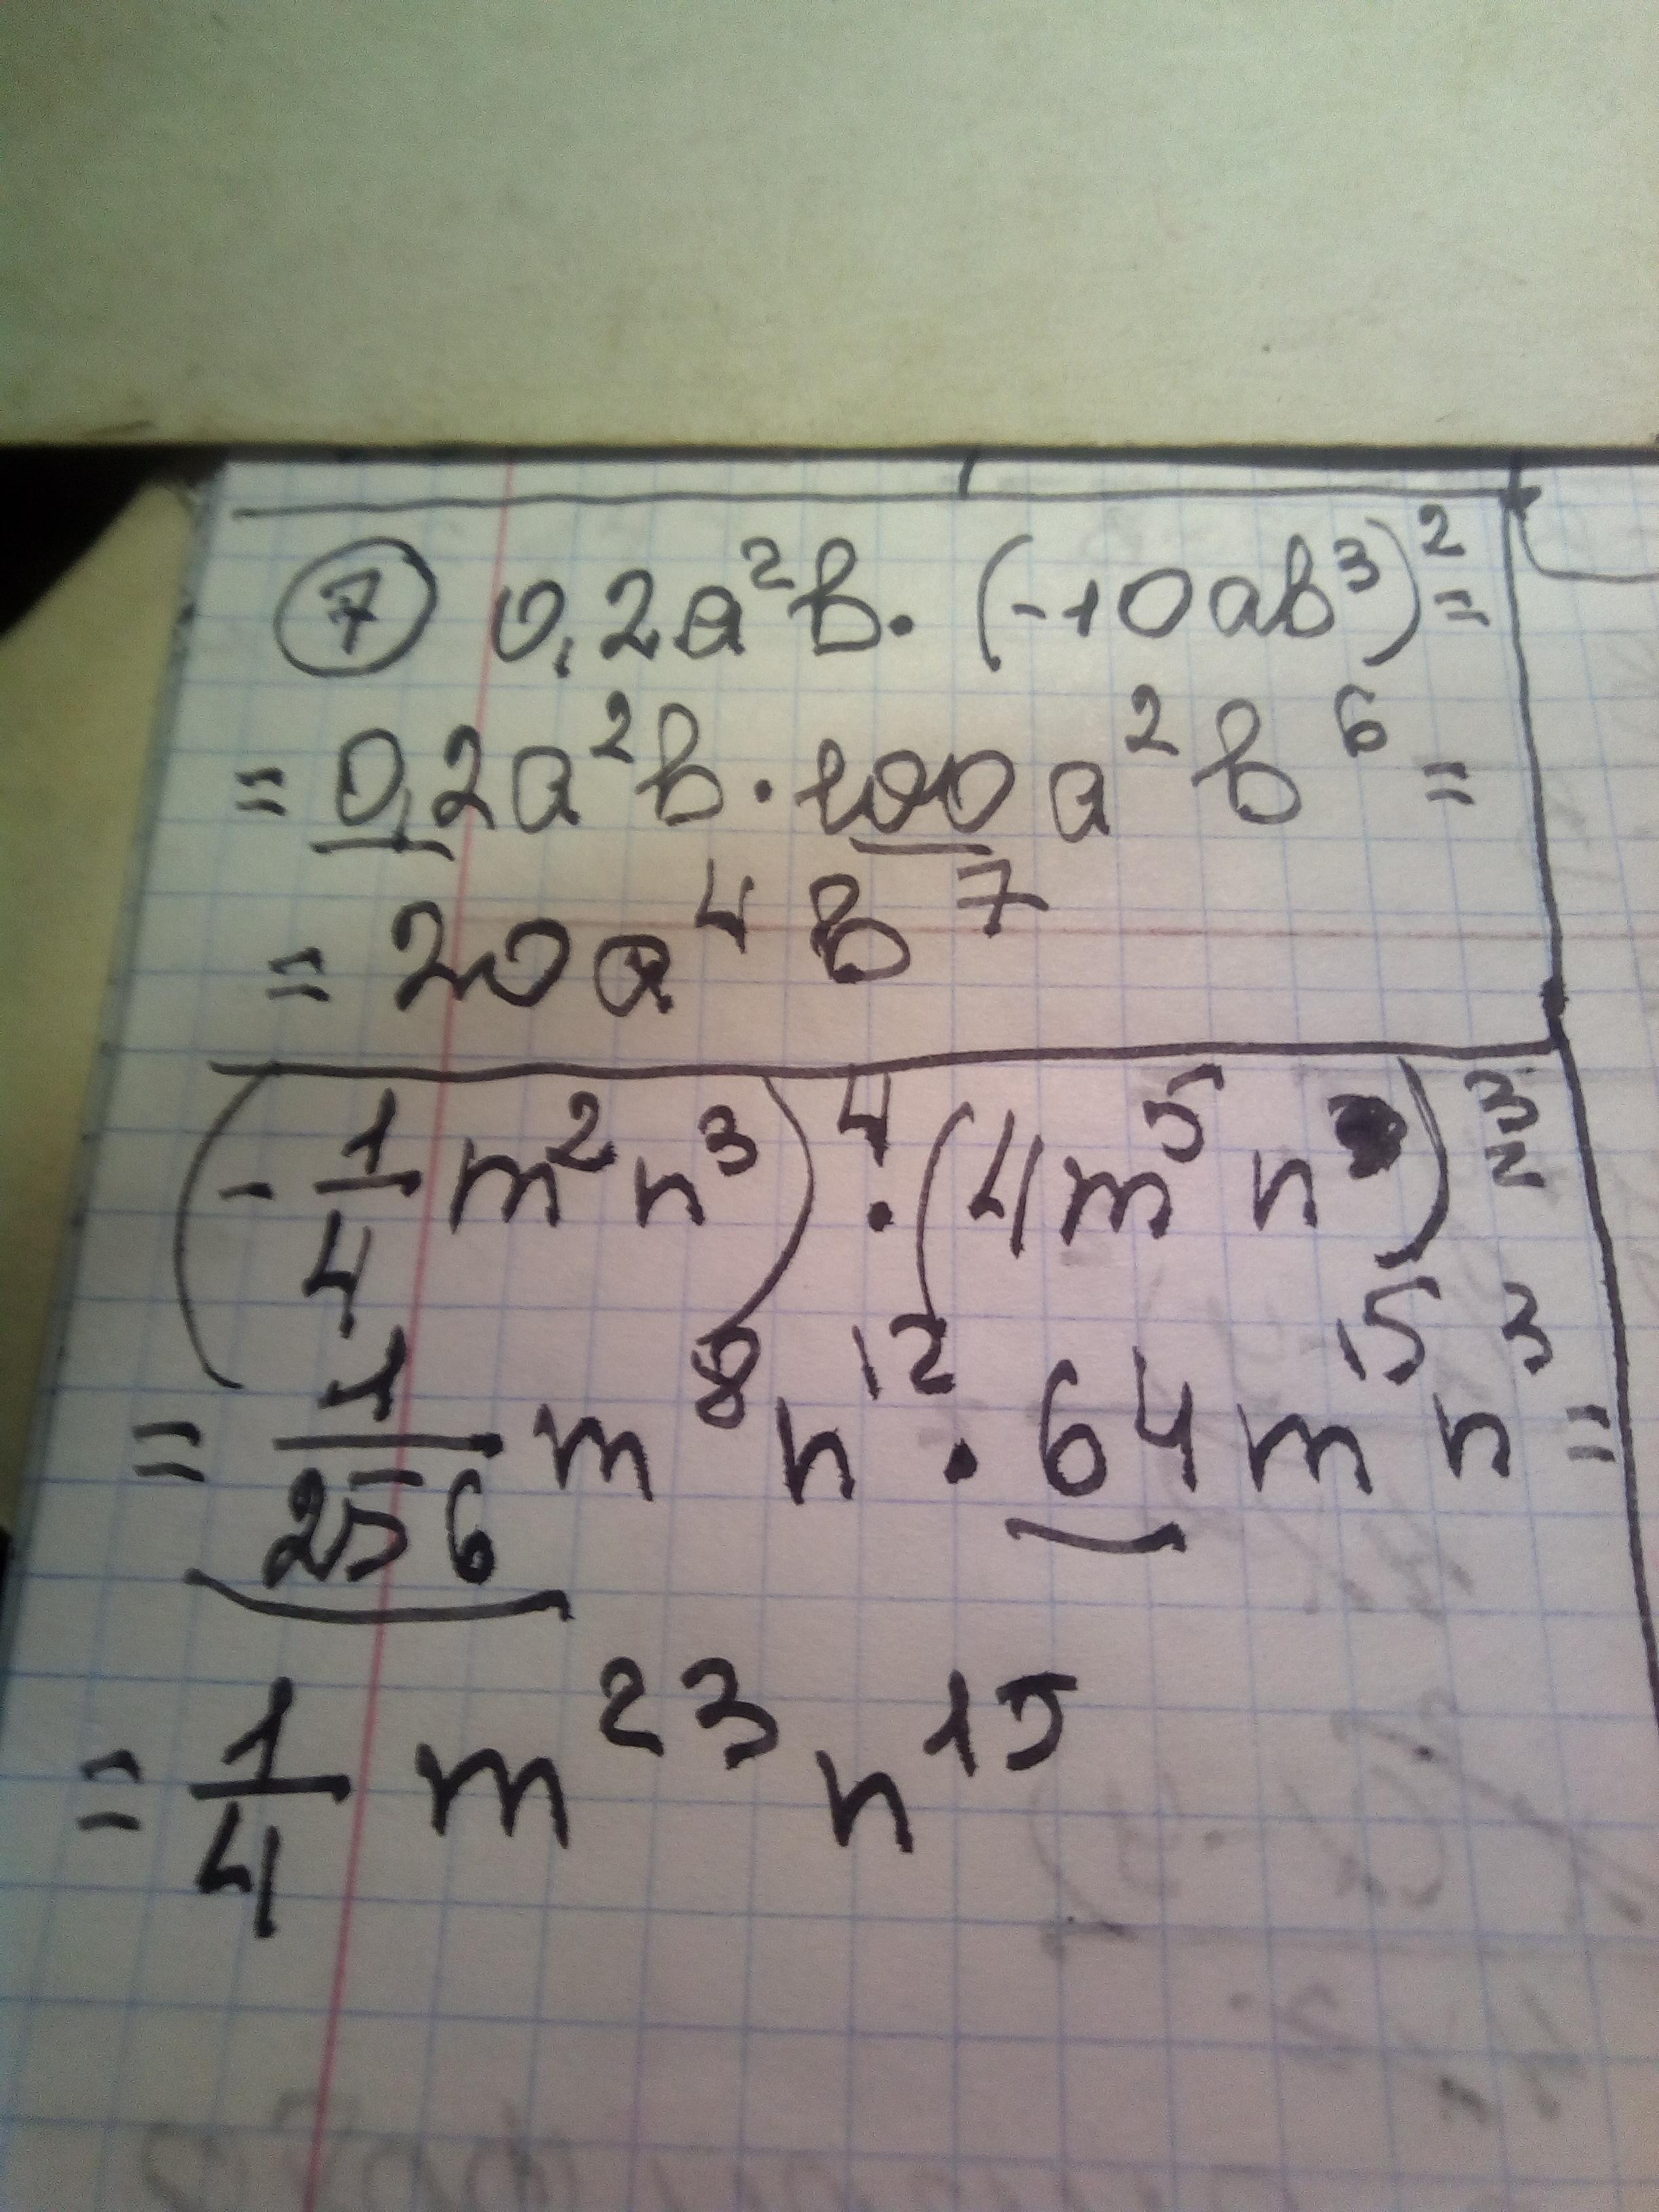 ⑦ 0,2a²b · (-10ab³)² =
= 0,2a²b · 100a²b⁶ =
= 20a⁴b⁷
(-1/4 m²n³)⁴ · (4m⁵n)³ =
= 1/256 m⁸n¹² · 64m¹⁵n³ =
= 1/4 m²³n¹⁵